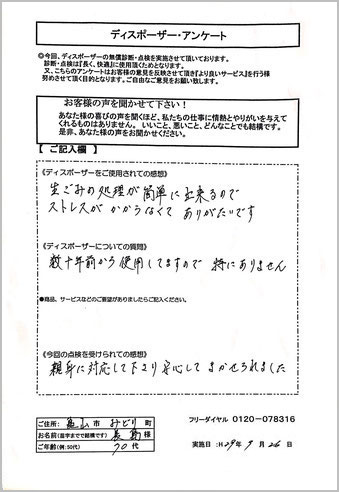 ディスポーザー・アンケート
◎今回、ディスポーザーの無償診断・点検を実施させて頂いております。
診断・点検は『長く、快適』に使用頂くためとなります。
又、こちらのアンケートはお客様の意見を反映させて頂き『より良いサービス』を行う様
努めさせて頂く目的となります。ご自由なご意見をお願い致します。
お客様の声を聞かせて下さい！
あなた様の喜びの声を聞くほど、私たちの仕事に情熱とやりがいを与えて
くれるものはありません。いいこと、悪いこと、どんなことでも結構です。
是非、あなた様の声をお聞かせください。
【 ご記入欄 】
《ディスポーザーをご使用されての感想》
生ごみの処理が簡単に出来るので
ストレスが かからなくて ありがたいです
《ディスポーザーについての質問》
数十年前から使用してますので 特にありません
●商品、サービスなどのご要望がありましたらご記入ください。
《今回の点検を受けられての感想》
親身に対応して下さり安心して まかせられました
ご住所: 亀山 市 みどり 町
お名前(苗字までで結構です) 長 様
ご年齢(例:50代) 70代
フリーダイヤル 0120-078316
実施日:H29年9月26日